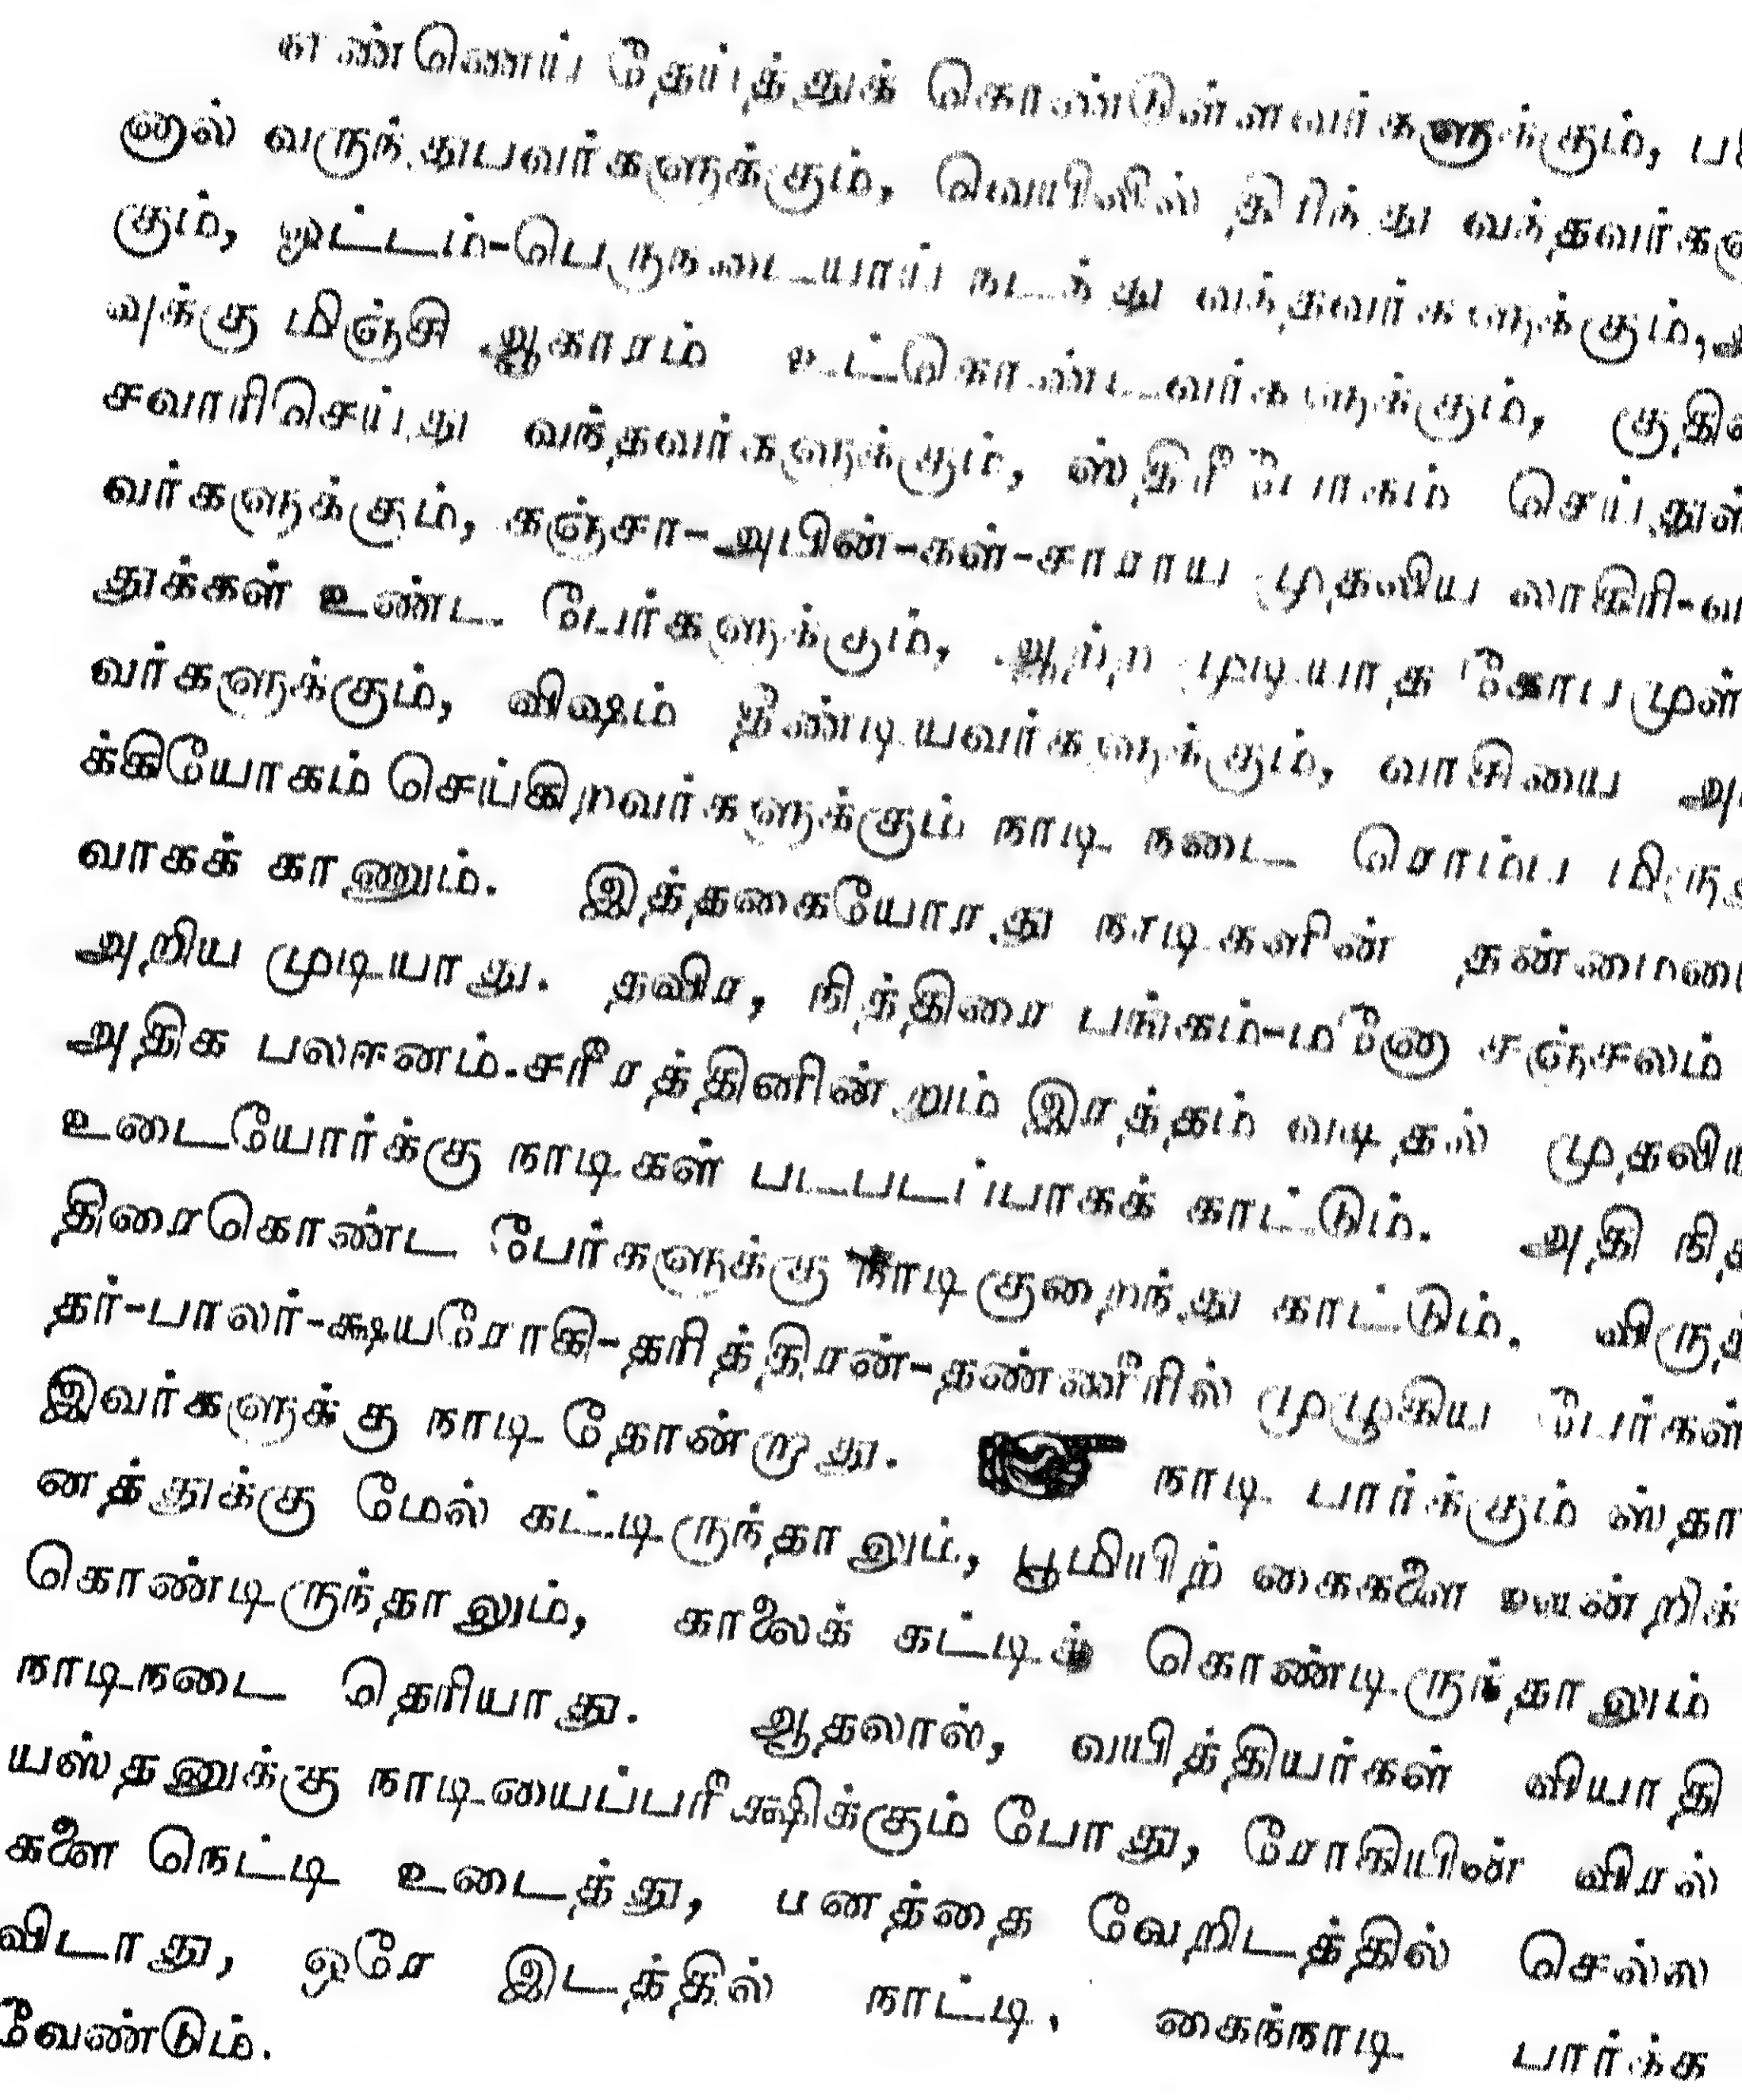 எண்ணெய் தேய்த்துக் கொண்டுள்ளவர்களுக்கும்,
னால் வருந்துபவர்களுக்கும், வெயிலில் திரிந்து வந்தவர்களு
கும், ஓட்டம்-பெருநடையாய் நடந்து வந்தவர்களுக்கும்,
வுக்கு மிஞ்சி ஆகாரம் உட்கொண்டவர்களுக்கும்,
சவாரிசெய்து வந்தவர்களுக்கும், ஸ்திரீ போகம் செய்துள்
வர்களுக்கும், கஞ்சா-அபின்-கள்-சாராய முதலிய லாகிரி-வ
துக்கள் உண்ட பேர்களுக்கும், ஆற்ற முடியாத கோபமுள்
வர்களுக்கும், விஷம் தீண்டியவர்களுக்கும், வாசியை
க்கியோகம் செய்கிறவர்களுக்கும் நாடி நடை ரொம்ப மிரு
வாகக் காணும். இத்தகையோரது நாடிகளின் தன்மை
அறிய முடியாது. தவிர, நித்திரை பங்கம்-மனோ சஞ்சலம்
அதிக பலஈனம்-சரீரத்தினின்றும் இரத்தம் வடிதல் முதலிய
உடையோர்க்கு நாடிகள் படபடப்பாகக் காட்டும். அதி நித்
திரைகொண்ட பேர்களுக்கு நாடி குறைந்து காட்டும். விருத்
தர்-பாலர்-க்ஷயரோகி-தரித்திரன்-தண்ணீரில் முழுகிய பேர்கள்
இவர்களுக்கு நாடி தோன்றாது. ☛ நாடி பார்க்கும் ஸ்தா
னத்துக்கு மேல் கட்டிருந்தாலும், பூமியிற் கைகளை ஊன்றிக்
கொண்டிருந்தாலும், காலைக் கட்டிக் கொண்டிருந்தாலும்
நாடிநடை தெரியாது. ஆதலால், வயித்தியர்கள் வியாதி
யஸ்தனுக்கு நாடியைப்பரீக்ஷிக்கும் போது, ரோகியின் விரல்
களை நெட்டி உடைத்து, மனத்தை வேறிடத்தில் செல்ல
விடாது, ஒரே இடத்தில் நாட்டி, கைந்நாடி பார்க்க
வேண்டும்.